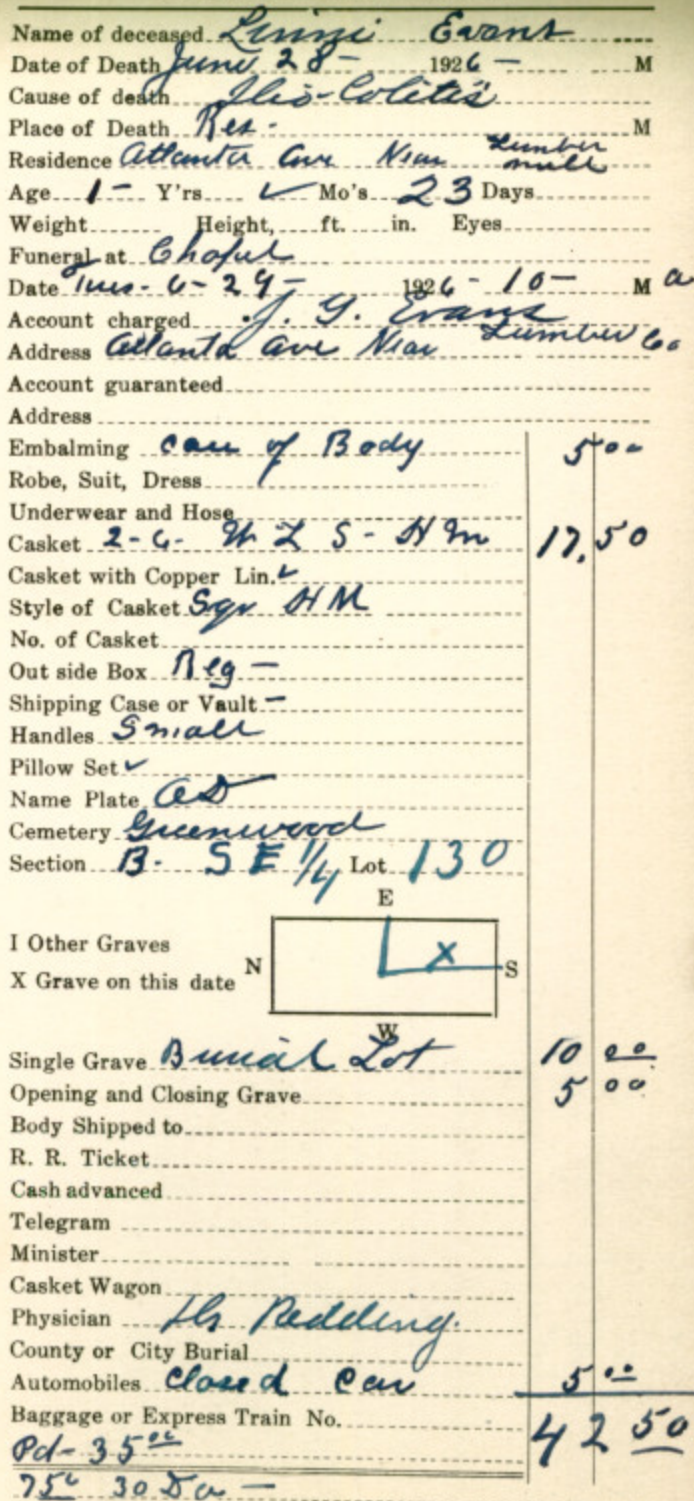 Name of deceased Evans
Date of Death June 28 - 1926 - M
Cause of death Ilio-Colitis
Place of Death Res - M
Residence Atlanta Ave Near Lumber mill
Age 1 - Y'rs ✓ Mo's 23 Days
Weight Height, ft. in. Eyes
Funeral at Chapel
Date Tues - 6 - 29 - 1926 - 10 - M a
Account charged J. G. Evans
Address Atlanta Ave Near Lumber Co
Account guaranteed
Address
Embalming Care of Body 5 00
Robe, Suit, Dress
Underwear and Hose
Casket 2-6- S - H M 17.50
Casket with Copper Lin. ✓
Style of Casket Sqr H M
No. of Casket
Out side Box Reg -
Shipping Case or Vault -
Handles Small
Pillow Set ✓
Name Plate O D
Cemetery Greenwood
Section B - S E 1/4 Lot 130
E
I Other Graves
N X S
X Grave on this date
W
Single Grave Burial Lot 10 00
Opening and Closing Grave 5 00
Body Shipped to
R. R. Ticket
Cash advanced
Telegram
Minister
Casket Wagon
Physician Dr Redding.
County or City Burial
Automobiles Closed Car 5 00
Baggage or Express Train No. 42 50
Pd - 35 00
7 50 30 Da -